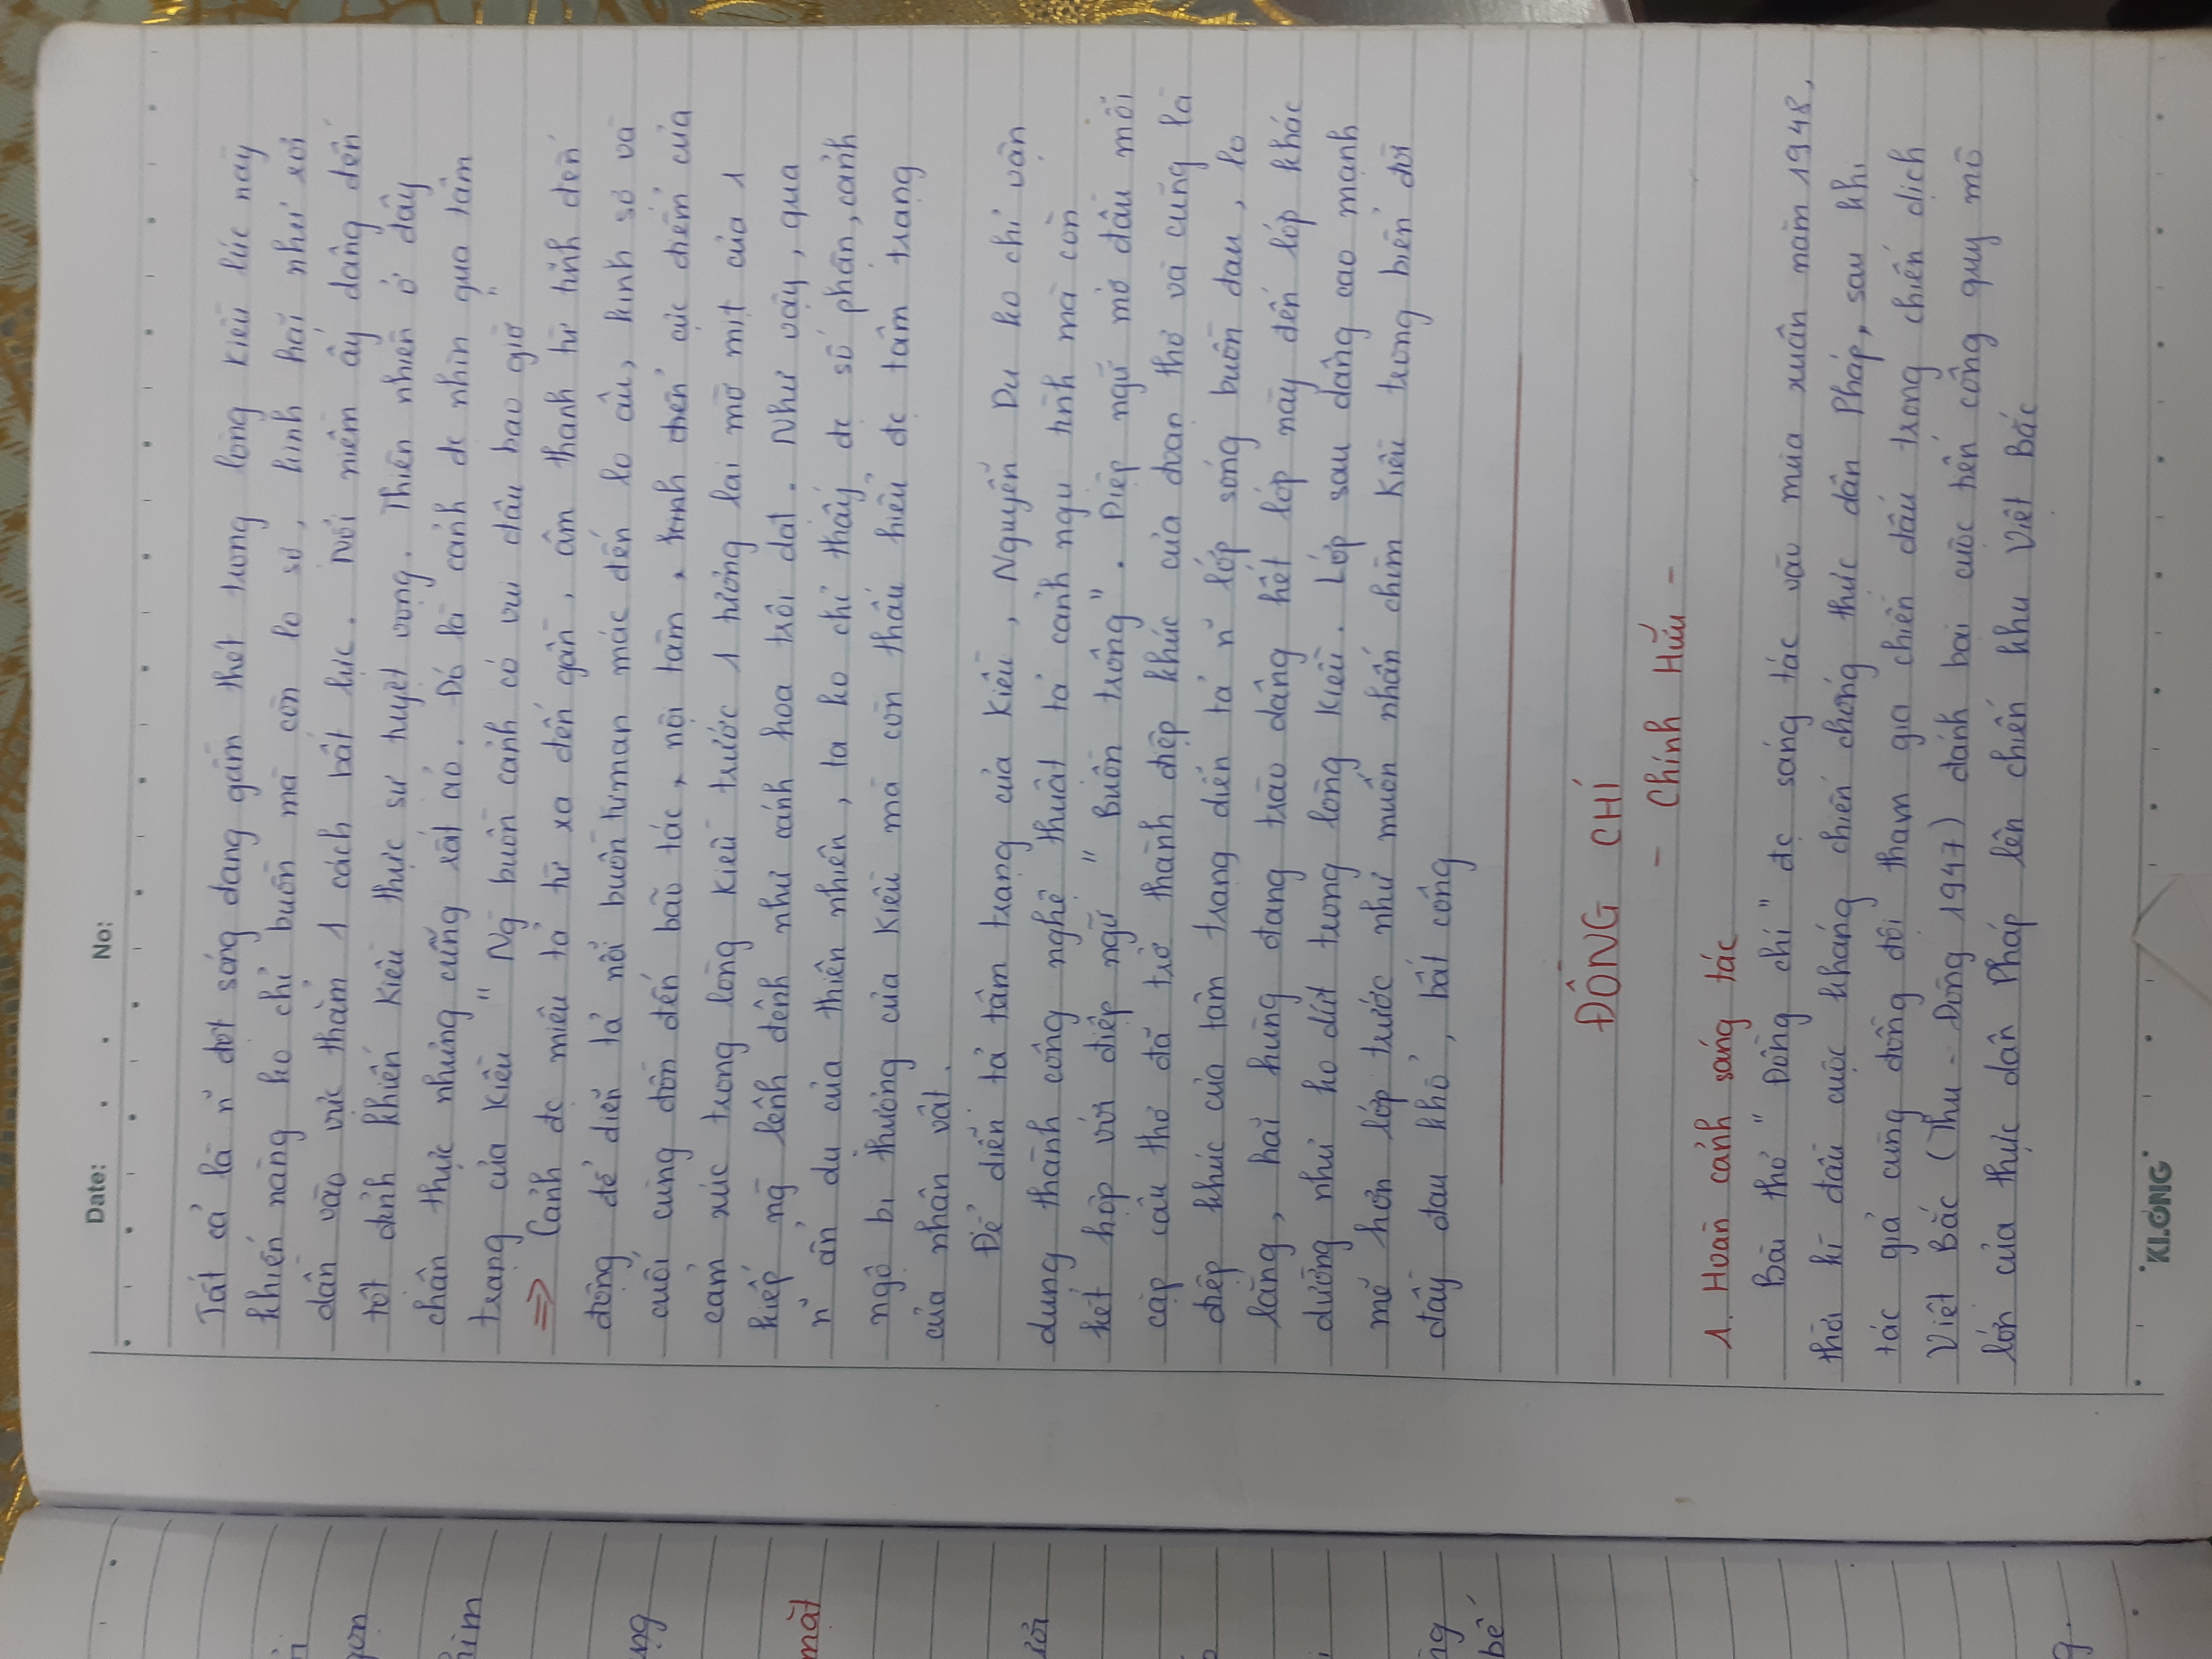 Date: . . No:
Tất cả là n~ đợt sóng đang gầm thét trong lòng Kiều lúc này
khiến nàng ko chỉ buồn mà còn lo sợ, kinh hãi như rơi
dần vào vực thẳm 1 cách bất lực. Nỗi niềm ấy dâng đến
tột đỉnh khiến Kiều thực sự tuyệt vọng. Thiên nhiên ở đây
chân thực nhưng cũng rất ảo. Đó là cảnh đc nhìn qua tâm
trạng của Kiều "Ng buồn cảnh có vui đâu bao giờ"
=> Cảnh đc miêu tả từ xa đến gần, âm thanh từ tĩnh đến
động để diễn tả nỗi buồn từ man mác đến lo âu, kinh sợ và
cuối cùng dồn đến bão táp, nội tâm, đỉnh điểm của
cảm xúc trong lòng Kiều trước 1 tương lai mờ mịt của 1
kiếp ng lênh đênh như cánh hoa trôi dạt. Như vậy, qua
n~ ẩn dụ của thiên nhiên, ta ko chỉ thấy đc số phận, cảnh
ngộ bi thương của Kiều mà còn thấu hiểu đc tâm trạng
của nhân vật.
Để diễn tả tâm trạng của Kiều, Nguyễn Du ko chỉ vận
dụng thành công nghệ thuật tả cảnh ngụ tình mà còn
kết hợp với điệp ngữ "Buồn trông". Điệp ngữ mở đầu mỗi
cặp câu thơ đã trở thành điệp khúc của đoạn thơ và cũng là
điệp khúc của tâm trạng diễn tả n~ lớp sóng buồn đau, lo
lắng, hãi hùng đang trào dâng hết lớp này đến lớp khác
dường như ko dứt trong lòng Kiều. Lớp sau dâng cao mạnh
mẽ hơn lớp trước như muốn nhấn chìm Kiều trong biển đời
đầy đau khổ, bất công
ĐỒNG CHÍ
- Chính Hữu -
1. Hoàn cảnh sáng tác
Bài thơ "Đồng chí" đc sáng tác vào mùa xuân năm 1948,
thời kì đầu cuộc kháng chiến chống thực dân Pháp, sau khi
tác giả cùng đồng đội tham gia chiến đấu trong chiến dịch
Việt Bắc (Thu - Đông 1947) đánh bại cuộc tiến công quy mô
lớn của thực dân Pháp lên chiến khu Việt Bắc
KLONG